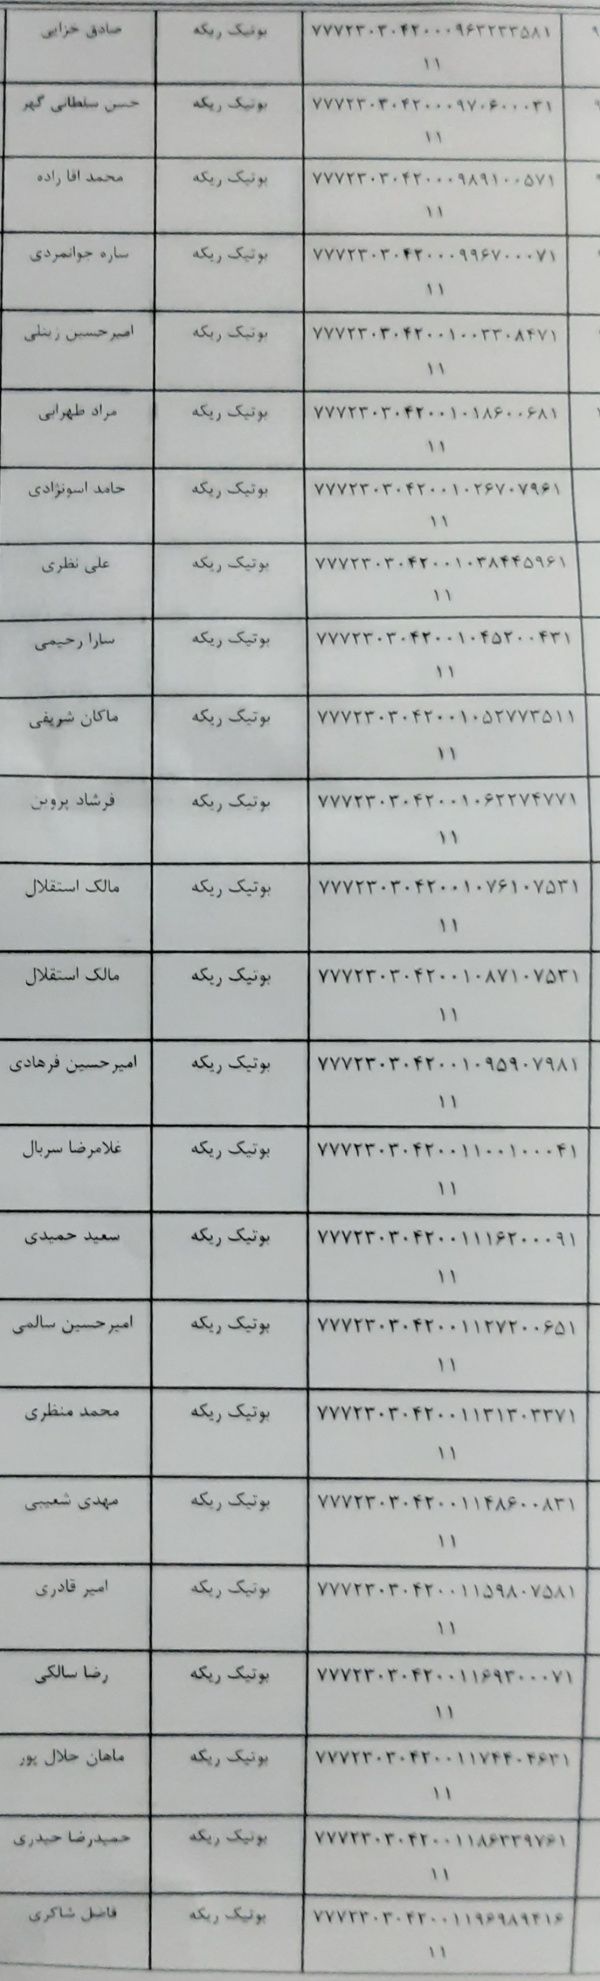 ۷۷۷۲۳۰۳۰۴۲۰۰۰۹۶۳۲۳۳۵۸۱ بوتیک ریکه صادق خزایی
۱۱
۷۷۷۲۳۰۳۰۴۲۰۰۰۹۷۰۶۰۰۰۳۱ بوتیک ریکه حسن سلطانی گهر
۱۱
۷۷۷۲۳۰۳۰۴۲۰۰۰۹۸۹۱۰۰۵۷۱ بوتیک ریکه محمد اقا زاده
۱۱
۷۷۷۲۳۰۳۰۴۲۰۰۰۹۹۶۷۰۰۰۷۱ بوتیک ریکه ساره جوانمردی
۱۱
۷۷۷۲۳۰۳۰۴۲۰۰۱۰۰۳۳۰۸۴۷۱ بوتیک ریکه امیرحسین زینلی
۱۱
۷۷۷۲۳۰۳۰۴۲۰۰۱۰۱۸۶۰۰۶۸۱ بوتیک ریکه مراد طهرابی
۱۱
۷۷۷۲۳۰۳۰۴۲۰۰۱۰۲۶۷۰۷۹۶۱ بوتیک ریکه حامد اسونژادی
۱۱
۷۷۷۲۳۰۳۰۴۲۰۰۱۰۳۸۴۴۵۹۶۱ بوتیک ریکه علی نظری
۱۱
۷۷۷۲۳۰۳۰۴۲۰۰۱۰۴۵۲۰۰۴۳۱ بوتیک ریکه سارا رحیمی
۱۱
۷۷۷۲۳۰۳۰۴۲۰۰۱۰۵۲۷۷۳۵۱۱ بوتیک ریکه ماکان شریفی
۱۱
۷۷۷۲۳۰۳۰۴۲۰۰۱۰۶۲۲۷۴۷۷۱ بوتیک ریکه فرشاد پروین
۱۱
۷۷۷۲۳۰۳۰۴۲۰۰۱۰۷۶۱۰۷۵۳۱ بوتیک ریکه مالک استقلال
۱۱
۷۷۷۲۳۰۳۰۴۲۰۰۱۰۸۷۱۰۷۵۳۱ بوتیک ریکه مالک استقلال
۱۱
۷۷۷۲۳۰۳۰۴۲۰۰۱۰۹۵۹۰۷۹۸۱ بوتیک ریکه امیرحسین فرهادی
۱۱
۷۷۷۲۳۰۳۰۴۲۰۰۱۱۰۰۱۰۰۰۴۱ بوتیک ریکه غلامرضا سربال
۱۱
۷۷۷۲۳۰۳۰۴۲۰۰۱۱۱۶۲۰۰۰۹۱ بوتیک ریکه سعید حمیدی
۱۱
۷۷۷۲۳۰۳۰۴۲۰۰۱۱۲۷۲۰۰۶۵۱ بوتیک ریکه امیرحسین سالمی
۱۱
۷۷۷۲۳۰۳۰۴۲۰۰۱۱۳۱۳۰۳۳۷۱ بوتیک ریکه محمد منظری
۱۱
۷۷۷۲۳۰۳۰۴۲۰۰۱۱۴۸۶۰۰۸۳۱ بوتیک ریکه مهدی شعیبی
۱۱
۷۷۷۲۳۰۳۰۴۲۰۰۱۱۵۹۸۰۷۵۸۱ بوتیک ریکه امیر قادری
۱۱
۷۷۷۲۳۰۳۰۴۲۰۰۱۱۶۹۳۰۰۰۷۱ بوتیک ریکه رضا سالکی
۱۱
۷۷۷۲۳۰۳۰۴۲۰۰۱۱۷۴۴۰۴۶۳۱ بوتیک ریکه ماهان جلال پور
۱۱
۷۷۷۲۳۰۳۰۴۲۰۰۱۱۸۶۳۳۹۷۶۱ بوتیک ریکه حمیدرضا حیدری
۱۱
۷۷۷۲۳۰۳۰۴۲۰۰۱۱۹۶۹۸۹۴۱۶ بوتیک ریکه فاضل شاکری
۱۱